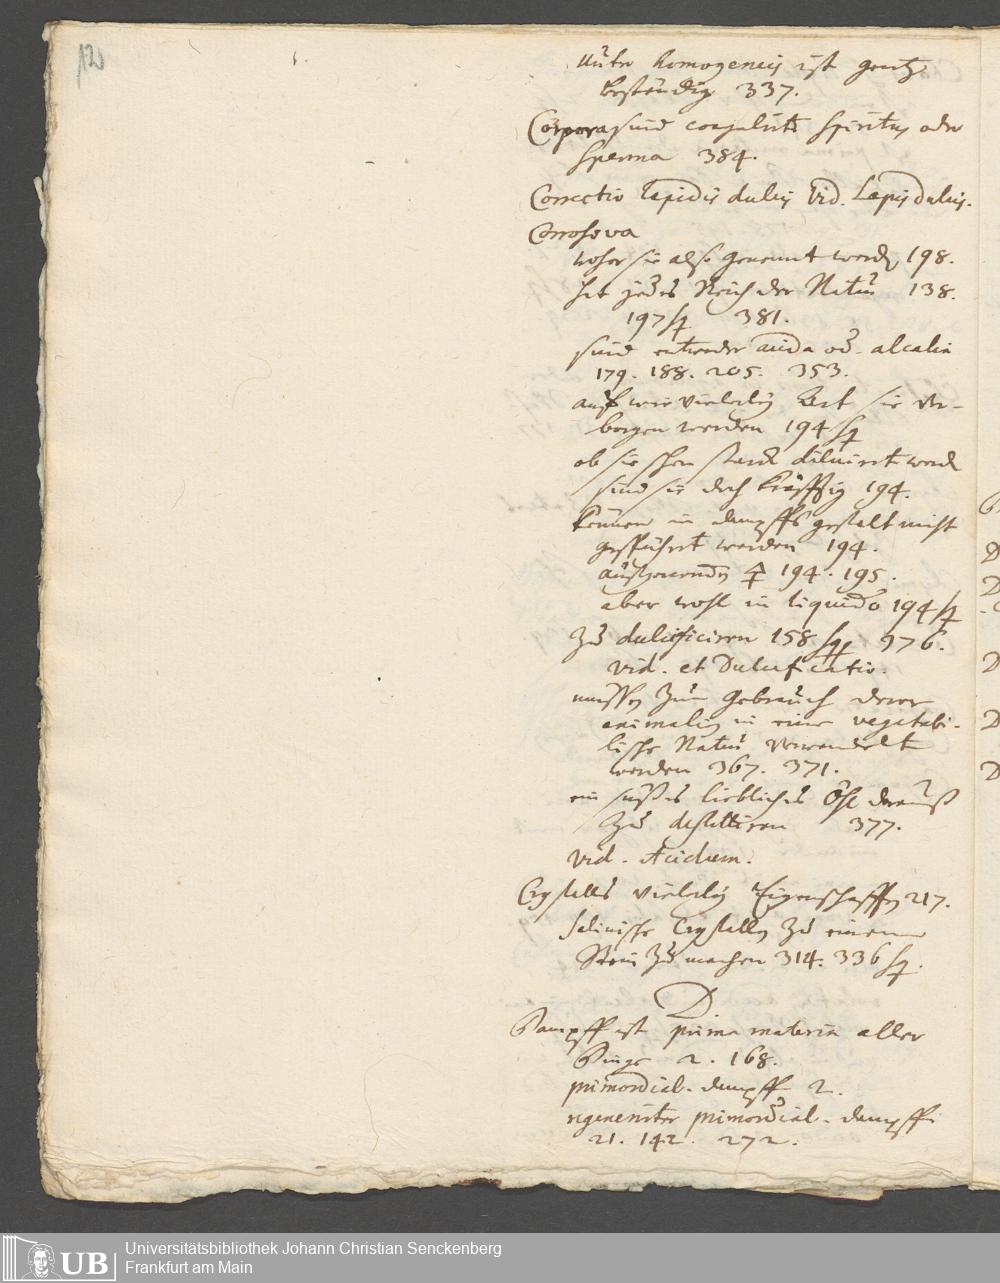 12
unter homogeneis ist gantz
beständig 337.
Corpora sind coagulirte spiritus oder
sperma 384.
Correctio Lapidis dulcis Vid. Lapis dulcis.
Corrosiva
woher sie also genennt werden 198.
hat jedes Reich der Natur 138.
197 sq 381.
sind entweder acida od. alcalia
179. 188. 205. 353.
auf wie vielerley Art sie ver-
borgen werden 194 sq
ob sie schon starck diluirt werden
sind sie doch kräfftig 194.
können in dampffs gestalt nicht
geführt werden 194.
194. 195.
aber wohl in liquido 194 sq
zu dulcificiren 158 sqq 376.
vid. et Dulcificatio.
müssen zum Gebrauch derer
animalien in eine vegetabi-
lische Natur verwandelt
werden 367. 371.
ein süßes liebliches Öhl darauß
zu destilliren 377.
vid. Acidum.
Crystalls vielerley Eigenschafften 217.
salinische Crystallen zu einem
Stein zu machen 314. 336 sq.
D.
Dampff ist prima materia aller
Dinge 2. 168.
primordial-dampff 2.
regenerirter primordial-dampff
21. 142. 272.
UB
Universitätsbibliothek Johann Christian Senckenberg
Frankfurt am Main